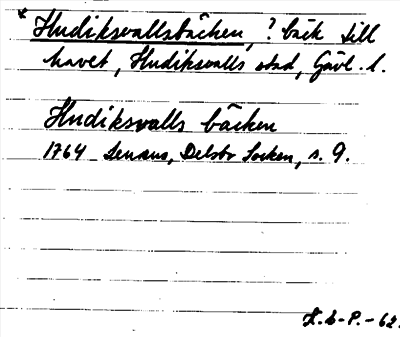 * Hudiksvallsbäcken, ? bäck till
havet, Hudiksvalls stad, Gävl. l.
Hudiksvalls bäcken
1764 Lenæus, Delsbo Socken, s. 9.
L.b-P.-62.